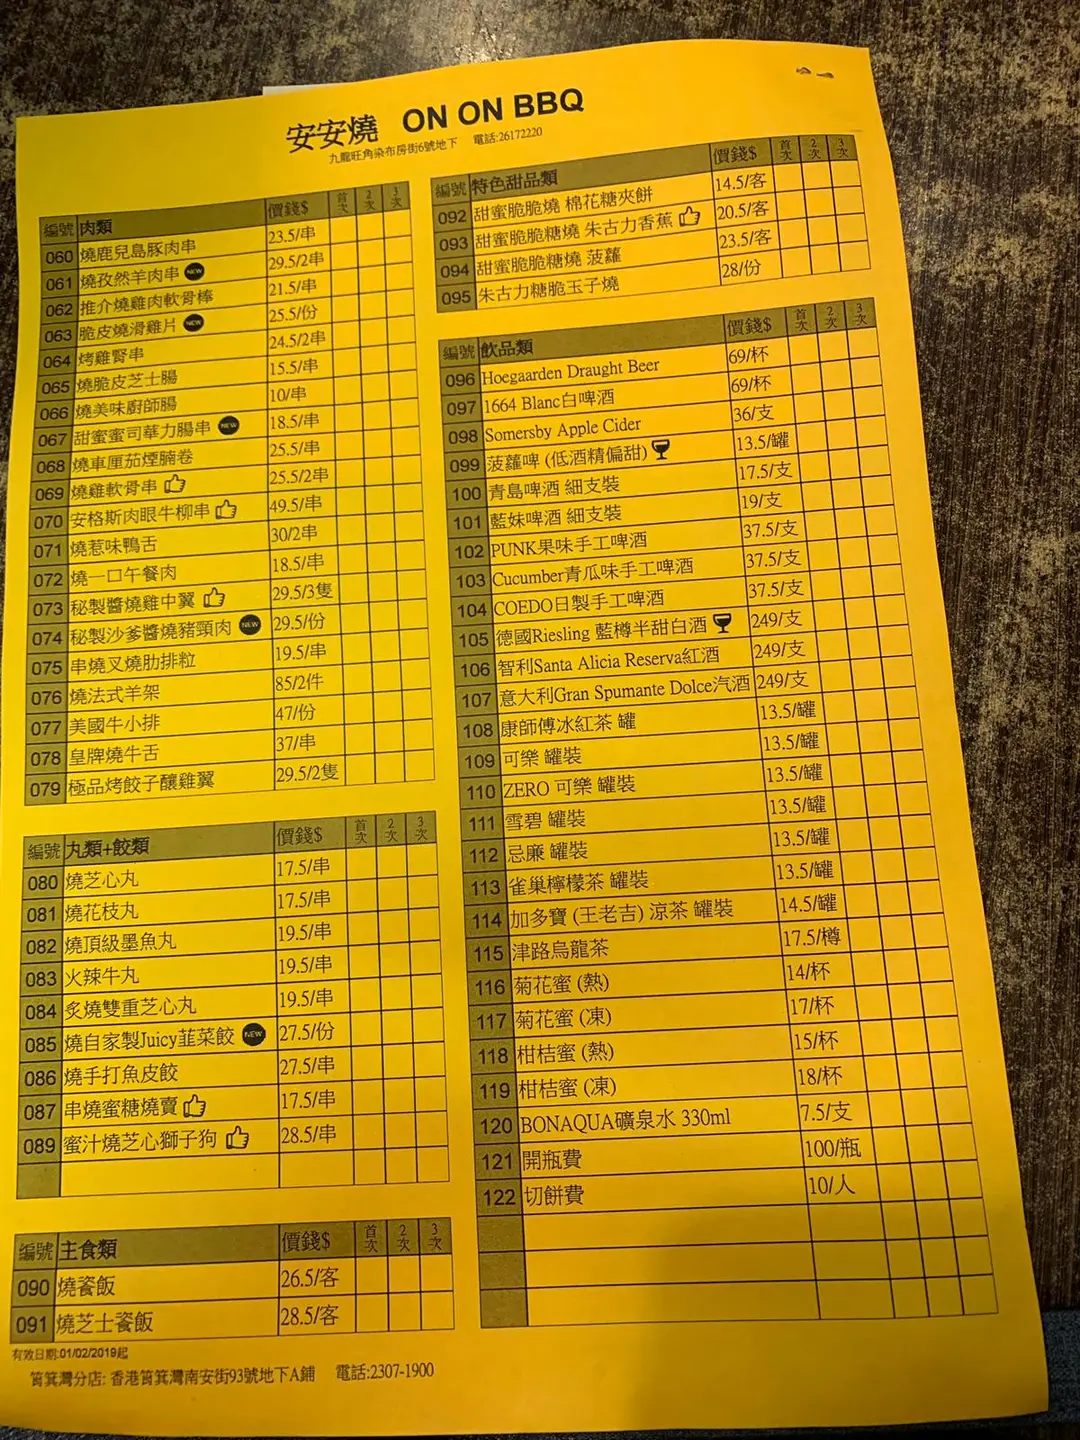 安安燒 ON ON BBQ
九龍旺角染布房街6號地下 電話:26172220
編號 肉類 價錢$ 首次 2次 3次
060 燒鹿兒島豚肉串 23.5/串
061 燒孜然羊肉串 NEW 29.5/2串
062 推介燒雞肉軟骨棒 21.5/串
063 脆皮燒滑雞片 NEW 25.5/份
064 烤雞腎串 24.5/2串
065 燒脆皮芝士腸 15.5/串
066 燒美味廚師腸 10/串
067 甜蜜蜜司華力腸串 NEW 18.5/串
068 燒車厘茄煙腩卷 25.5/串
069 燒雞軟骨串 25.5/2串
070 安格斯肉眼牛柳串 49.5/串
071 燒惹味鴨舌 30/2串
072 燒一口午餐肉 18.5/串
073 秘製醬燒雞中翼 29.5/3隻
074 秘製沙爹醬燒豬頸肉 NEW 29.5/份
075 串燒叉燒肋排粒 19.5/串
076 燒法式羊架 85/2件
077 美國牛小排 47/份
078 皇牌燒牛舌 37/串
079 極品烤餃子釀雞翼 29.5/2隻
編號 丸類+餃類 價錢$ 首次 2次 3次
080 燒芝心丸 17.5/串
081 燒花枝丸 17.5/串
082 燒頂級墨魚丸 19.5/串
083 火辣牛丸 19.5/串
084 炙燒雙重芝心丸 19.5/串
085 燒自家製Juicy韮菜餃 NEW 27.5/份
086 燒手打魚皮餃 27.5/串
087 串燒蜜糖燒賣 17.5/串
089 蜜汁燒芝心獅子狗 28.5/串
編號 主食類 價錢$ 首次 2次 3次
090 燒餈飯 26.5/客
091 燒芝士餈飯 28.5/客
有效日期:01/02/2019起
筲箕灣分店: 香港筲箕灣南安街93號地下A鋪 電話:2307-1900
編號 特色甜品類 價錢$ 首次 2次 3次
092 甜蜜脆脆燒 棉花糖夾餅 14.5/客
093 甜蜜脆脆糖燒 朱古力香蕉 20.5/客
094 甜蜜脆脆糖燒 菠蘿 23.5/客
095 朱古力糖脆玉子燒 28/份
編號 飲品類 價錢$ 首次 2次 3次
096 Hoegaarden Draught Beer 69/杯
097 1664 Blanc白啤酒 69/杯
098 Somersby Apple Cider 36/支
099 菠蘿啤 (低酒精偏甜) 13.5/罐
100 青島啤酒 細支裝 17.5/支
101 藍妹啤酒 細支裝 19/支
102 PUNK果味手工啤酒 37.5/支
103 Cucumber青瓜味手工啤酒 37.5/支
104 COEDO日製手工啤酒 37.5/支
105 德國Riesling 藍樽半甜白酒 249/支
106 智利Santa Alicia Reserva紅酒 249/支
107 意大利Gran Spumante Dolce汽酒 249/支
108 康師傅冰紅茶 罐 13.5/罐
109 可樂 罐裝 13.5/罐
110 ZERO 可樂 罐裝 13.5/罐
111 雪碧 罐裝 13.5/罐
112 忌廉 罐裝 13.5/罐
113 雀巢檸檬茶 罐裝 13.5/罐
114 加多寶 (王老吉) 涼茶 罐裝 14.5/罐
115 津路烏龍茶 17.5/樽
116 菊花蜜 (熱) 14/杯
117 菊花蜜 (凍) 17/杯
118 柑桔蜜 (熱) 15/杯
119 柑桔蜜 (凍) 18/杯
120 BONAQUA礦泉水 330ml 7.5/支
121 開瓶費 100/瓶
122 切餅費 10/人